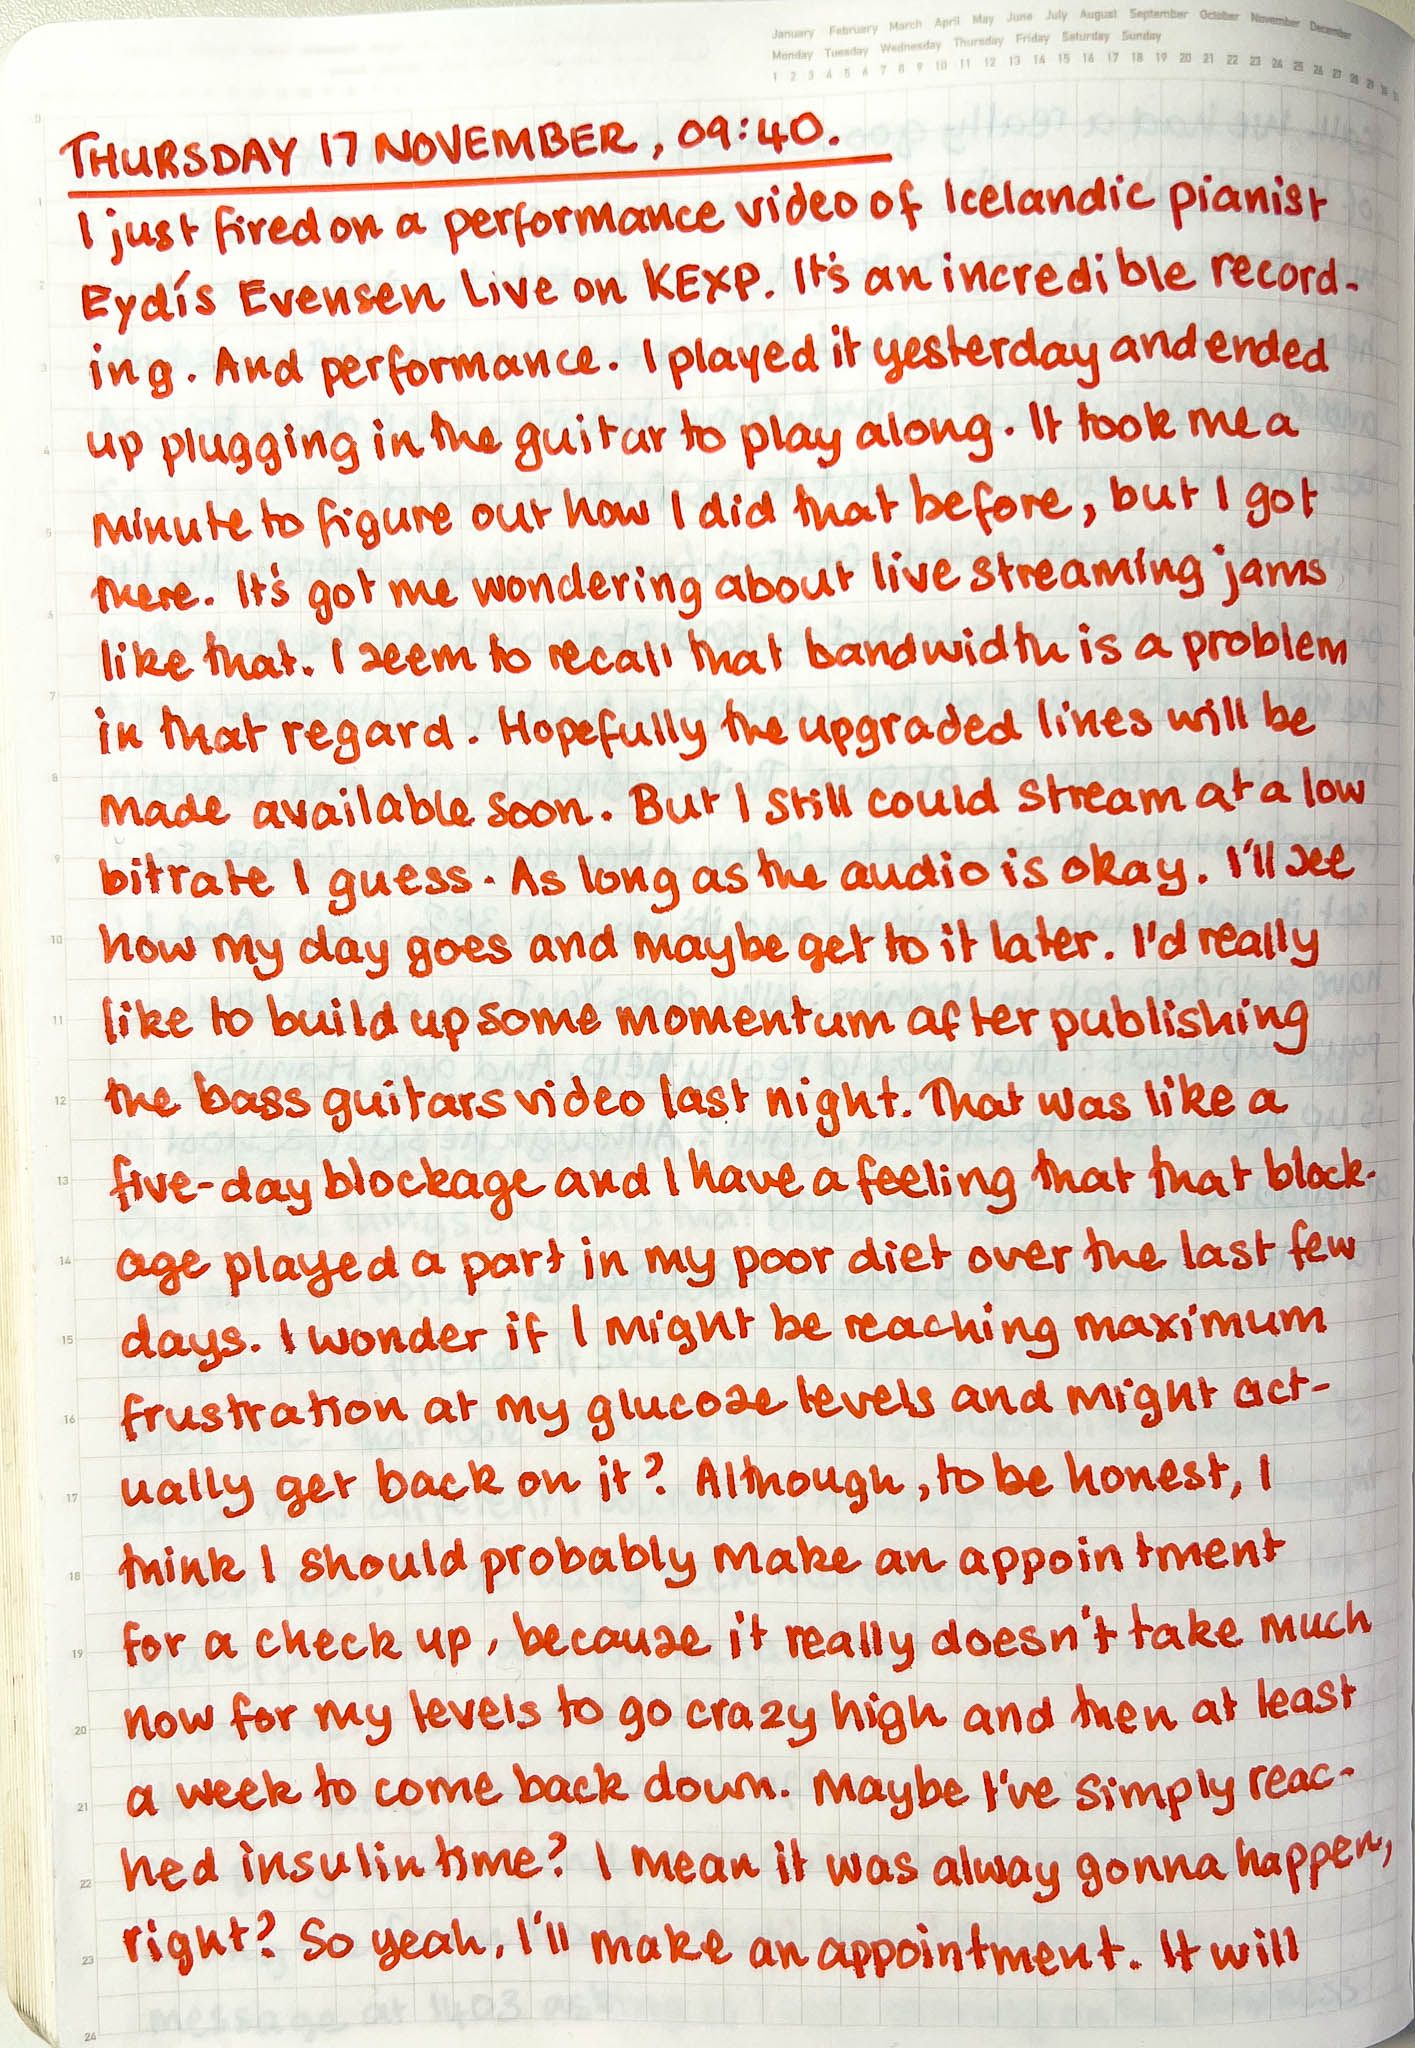 January February March April May June July August September October November December
Monday Tuesday Wednesday Thursday Friday Saturday Sunday
1 2 3 4 5 6 7 8 9 10 11 12 13 14 15 16 17 18 19 20 21 22 23 24 25 26 27 28 29 30 31
THURSDAY 17 NOVEMBER, 09:40.
I just fired on a performance video of Icelandic pianist
Eydís Evensen Live on KEXP. It's an incredible record-
ing. And performance. I played it yesterday and ended
up plugging in the guitar to play along. It took me a
minute to figure out how I did that before, but I got
there. It's got me wondering about live streaming jams
like that. I seem to recall that bandwidth is a problem
in that regard. Hopefully the upgraded lines will be
made available soon. But I still could stream at a low
bitrate I guess. As long as the audio is okay. I'll see
how my day goes and maybe get to it later. I'd really
like to build up some momentum after publishing
the bass guitars video last night. That was like a
five-day blockage and I have a feeling that that block-
age played a part in my poor diet over the last few
days. I wonder if I might be reaching maximum
frustration at my glucose levels and might act-
ually get back on it? Although, to be honest, I
think I should probably make an appointment
for a check up, because it really doesn't take much
now for my levels to go crazy high and then at least
a week to come back down. Maybe I've simply reac-
hed insulin time? I mean it was alway gonna happen,
right? So yeah, I'll make an appointment. It will